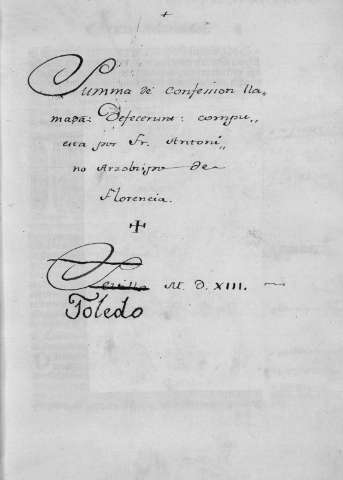 +
Summa de Confession lla„
mada: Defecerunt: compu„
esta por Fr. Antoni„
no Arzobispo de
Florencia.
✠
Sevilla M. D. XIII.
Toledo